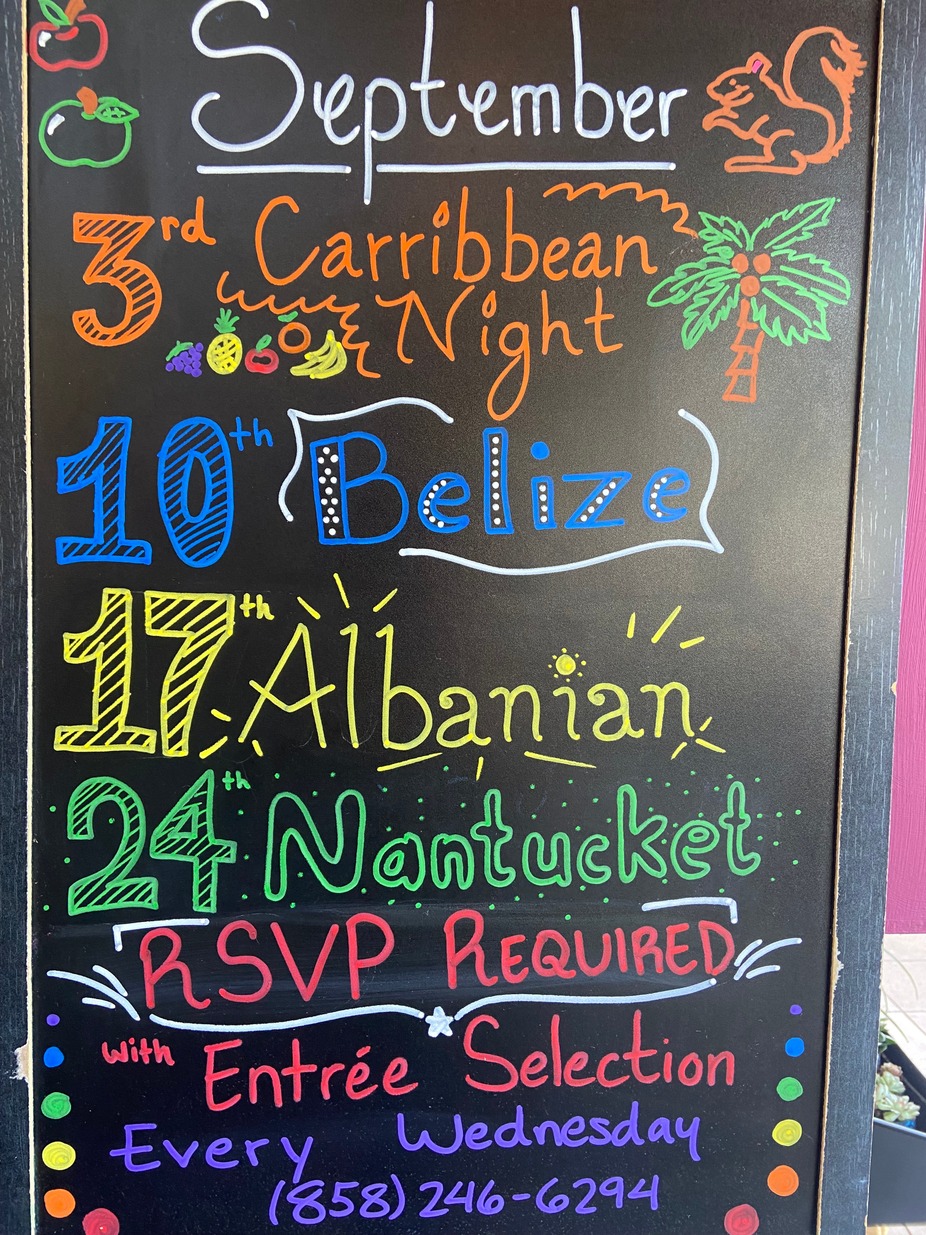 September
3rd Carribbean
Night
10th Belize
17th Albanian
24th Nantucket
RSVP REQUIRED
with Entrée Selection
Every Wednesday
(858) 246-6294